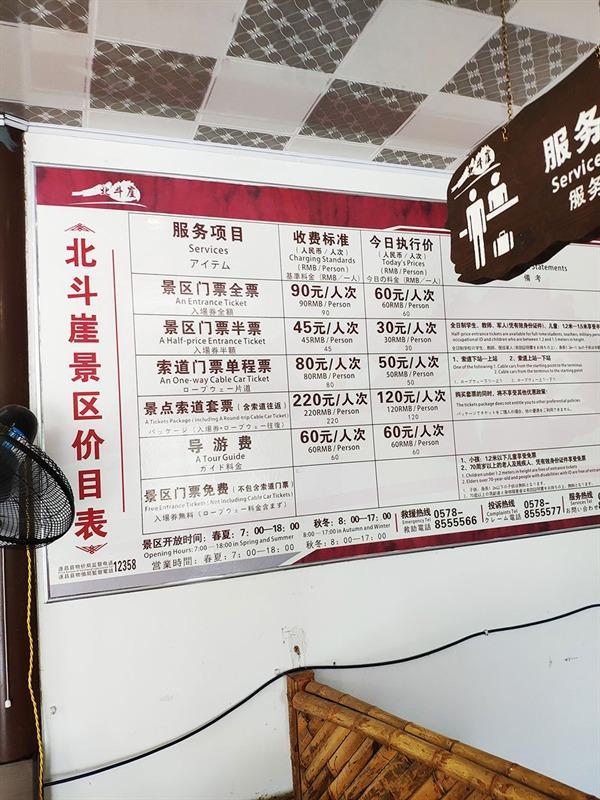 北斗崖
服务
Service
服务
北斗崖景区价目表
服务项目
Services
アイテム
收费标准
（人民币/人次）
Charging Standards
(RMB / Person)
基準料金（RMB/一人）
今日执行价
（人民币/人次）
Today's Prices
(RMB / Person)
今日の料金（RMB/一人）
Statements
備 考
景区门票全票
An Entrance Ticket
入場券全額
90元/人次
90RMB / Person
90
60元/人次
60RMB / Person
60
景区门票半票
A Half-price Entrance Ticket
入場券半額
45元/人次
45RMB / Person
45
30元/人次
30RMB / Person
30
索道门票单程票
An One-way Cable Car Ticket
ロープウェー片道
80元/人次
80RMB / Person
80
50元/人次
50RMB / Person
50
1、索道下站—上站 2、索道上站—下站
景点索道套票（含索道往返）
A Tickets Package ( Including A Round-trip Cable Car Ticket)
パッケージ（入場券+ロープウェー往復）
220元/人次
220RMB / Person
220
120元/人次
120RMB / Person
120
购买套票的同时，将不享受其他优惠政策；
The tickets package does not entitle you to other preferential policies
导 游 费
A Tour Guide
ガイド料金
60元/人次
60RMB / Person
60
60元/人次
60RMB / Person
60
景区门票免费（不包含索道门票）
Free Entrance Ticket ( Not Including Cable Car Tickets)
入場券無料（ロープウェー料金含まず）
1、小孩：1.2米以下儿童享受免票
2、70周岁以上的老人及残疾人，凭有效身份证件享受免票
1. Children under 1.2 meters in height are free of entrance tickets
景区开放时间：春夏：7：00—18：00 秋冬：8：00—17：00
Opening Hours: 7:00—18:00 in Spring and Summer 8:00—17:00 in Autumn and Winter
営業時間：春夏：7：00—18：00 秋冬：8：00—17：00
救援热线
Emergency Tel
救助電話
0578-
8555566
投诉热线
Complaints Tel
クレーム電話
0578-
8555577
服务热线
Services Tel
お問い合わせ
12358